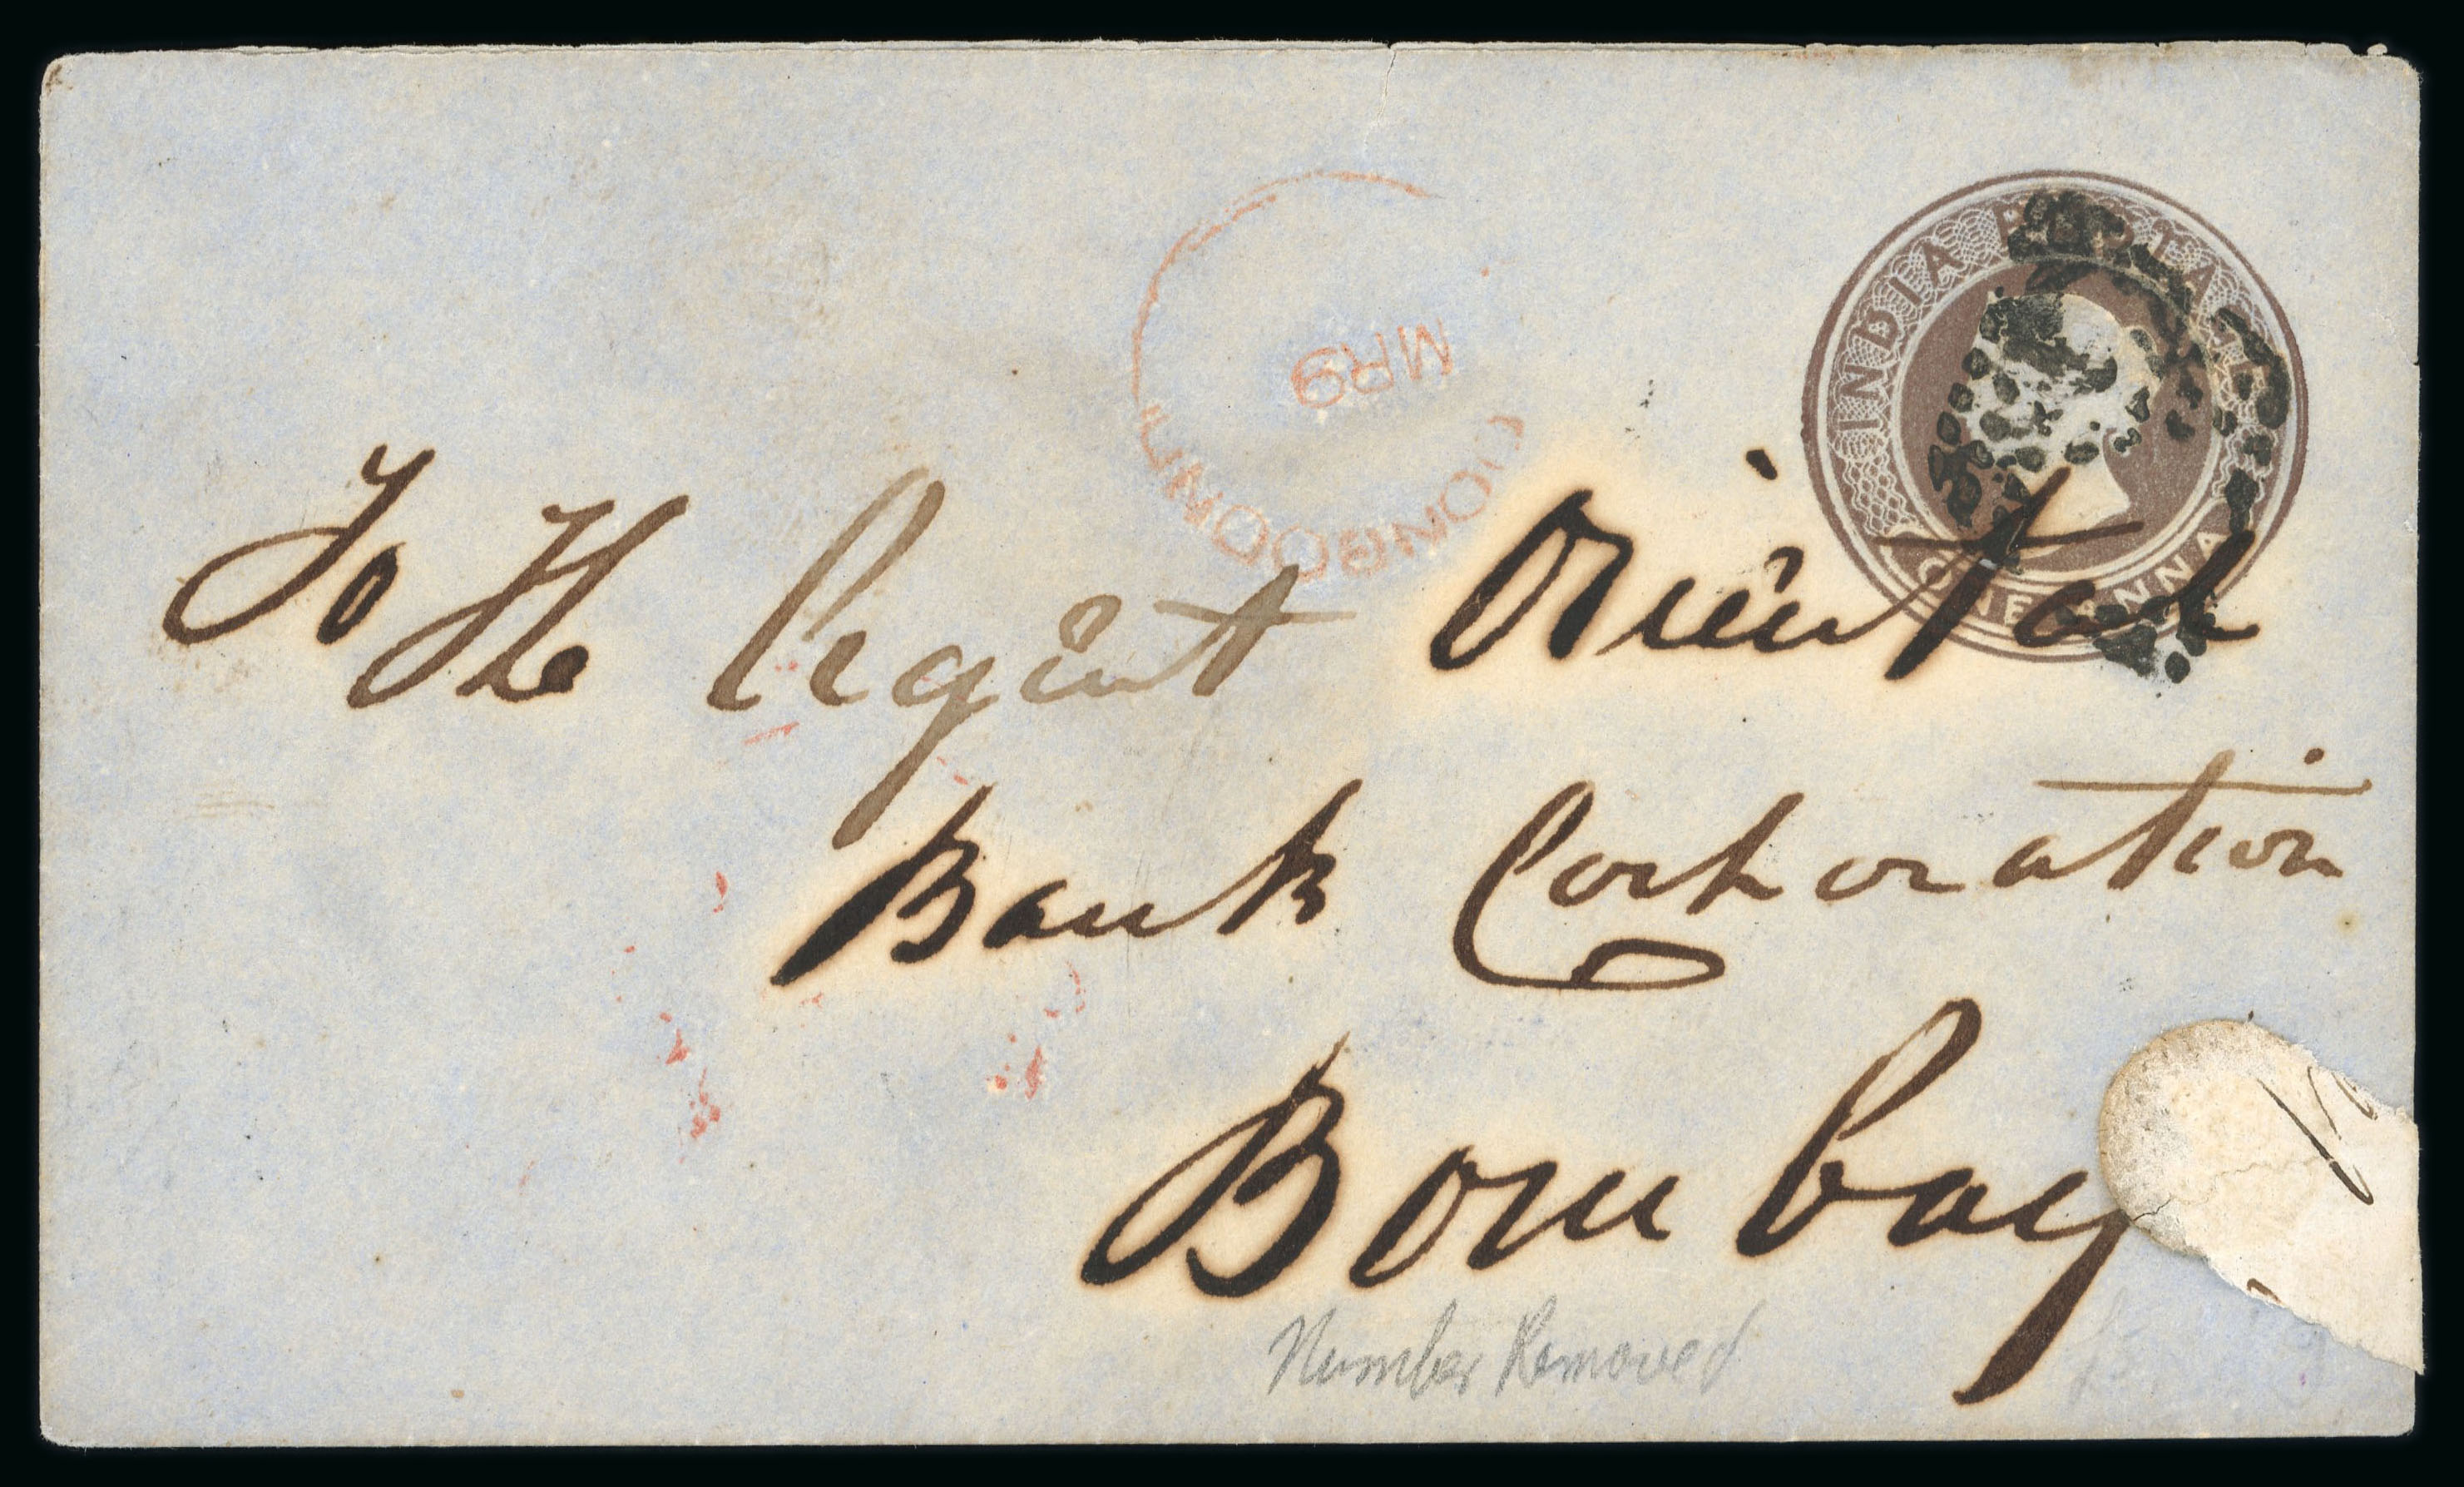 INDIA POSTAGE
MR 9
To The Agent Oriental
ONE ANNA
Bank Corporation
Bombay
Number Removed